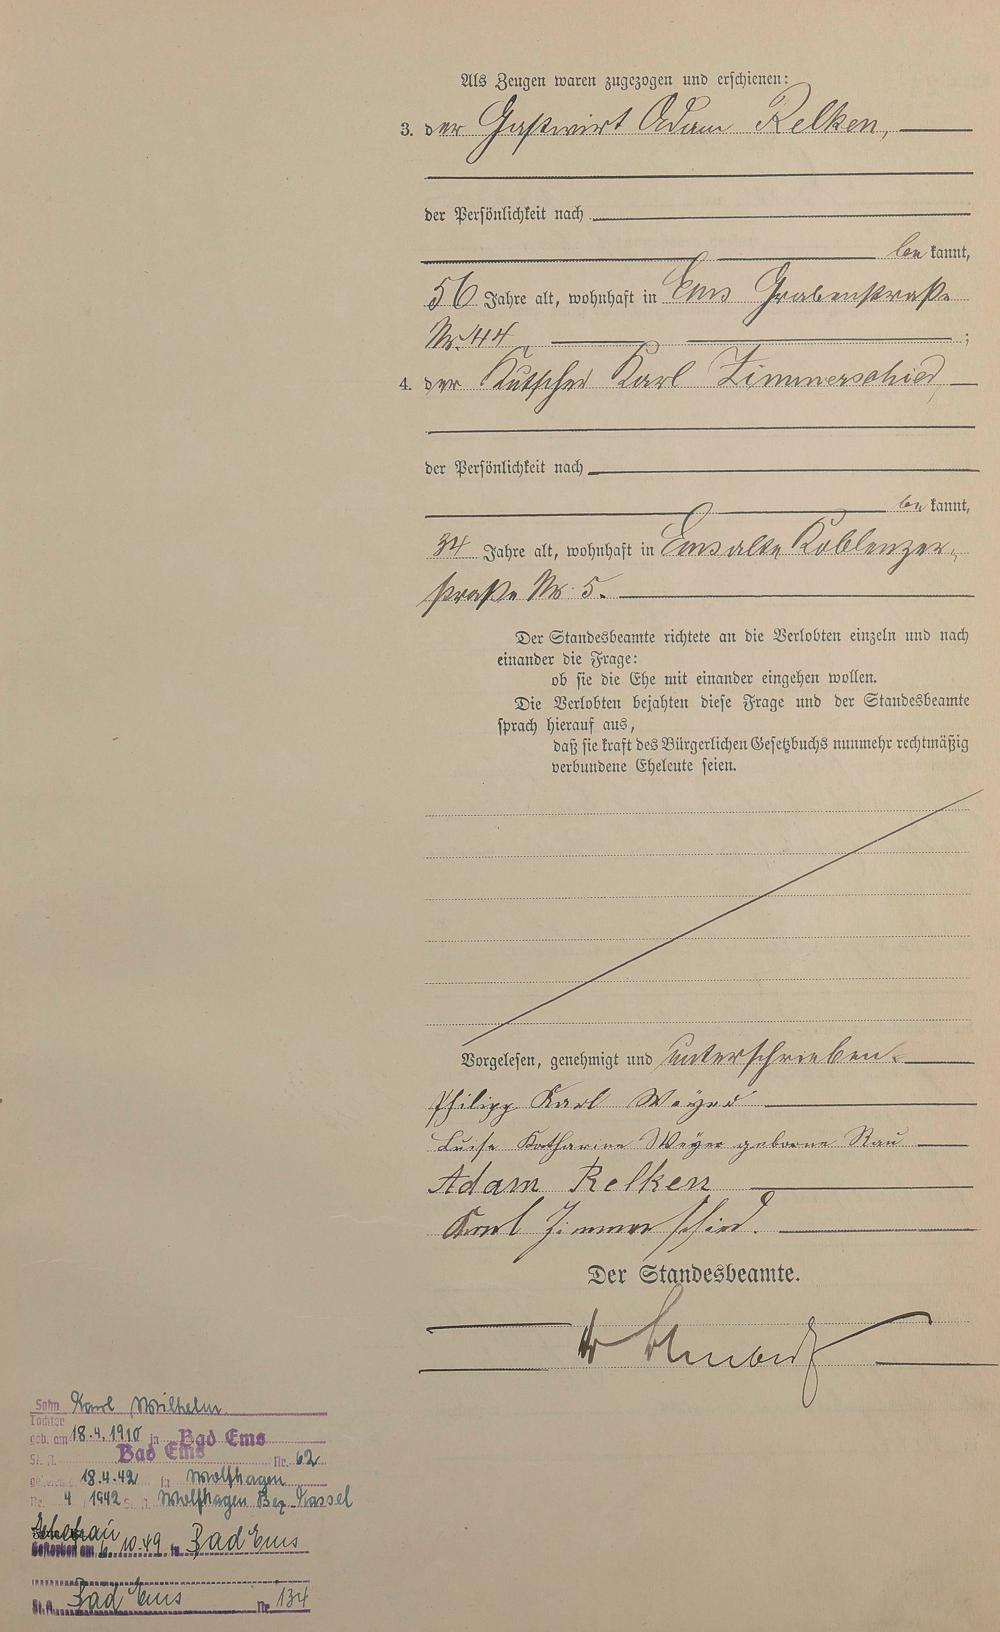 Als Zeugen waren zugezogen und erschienen:
3. der Gastwirt Adam Relken,
der Persönlichkeit nach
be kannt,
56 Jahre alt, wohnhaft in Ems Grabenstraße
Nr. 44 ;
4. der Kutscher Karl Zimmerschied,
der Persönlichkeit nach
be kannt,
34 Jahre alt, wohnhaft in Ems alte Koblenzer-
straße Nr. 5.
Der Standesbeamte richtete an die Verlobten einzeln und nach
einander die Frage:
ob sie die Ehe mit einander eingehen wollen.
Die Verlobten bejahten diese Frage und der Standesbeamte
sprach hierauf aus,
daß sie kraft des Bürgerlichen Gesetzbuchs nunmehr rechtmäßig
verbundene Eheleute seien.
Vorgelesen, genehmigt und unterschrieben.
Philipp Karl Weyer
Luise Katharine Weyer geborne Rau
Adam Relken
Karl Zimmerschied.
Der Standesbeamte.
Sohn Karl Wilhelm
Tochter
geb. am 18.4.1910 in Bad Ems
St. A. Bad Ems Nr. 62
18.4.42 in Wolfhagen
Nr. 4 / 1942 St. A. Wolfhagen Bez. Kassel
Ehefrau
Gestorben am 6.10.49 in Bad Ems
St. A. Bad Ems Nr. 134